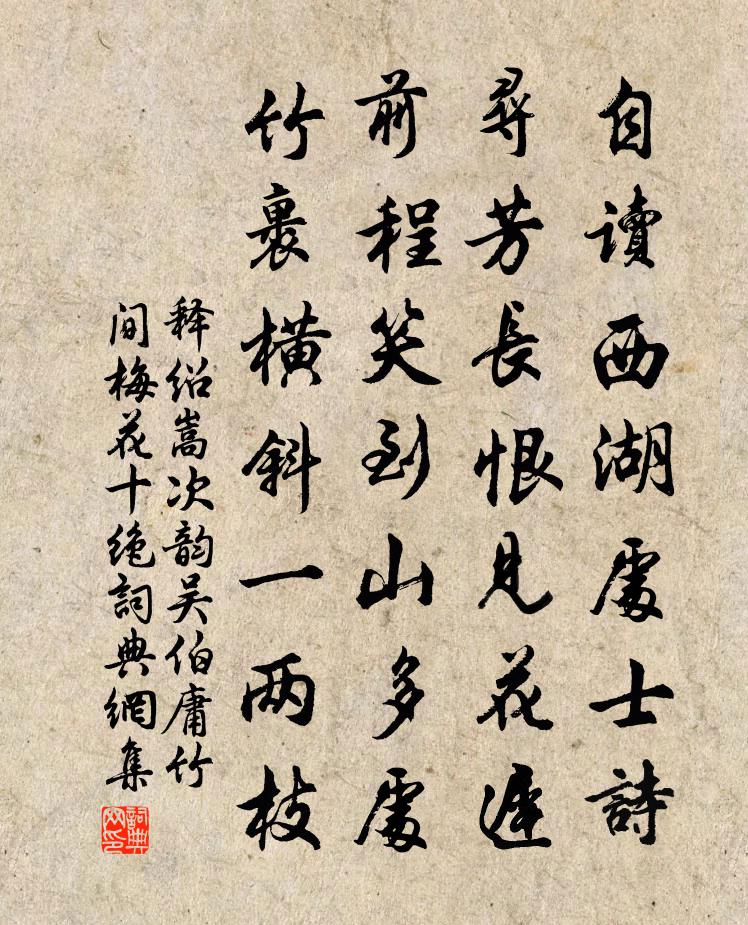 自讀西湖處士詩
尋芳長恨見花遲
前程笑到山多處
竹裏橫斜一兩枝
释绍嵩次韵吴伯庸竹
间梅花十绝詞典網集
詞典网印